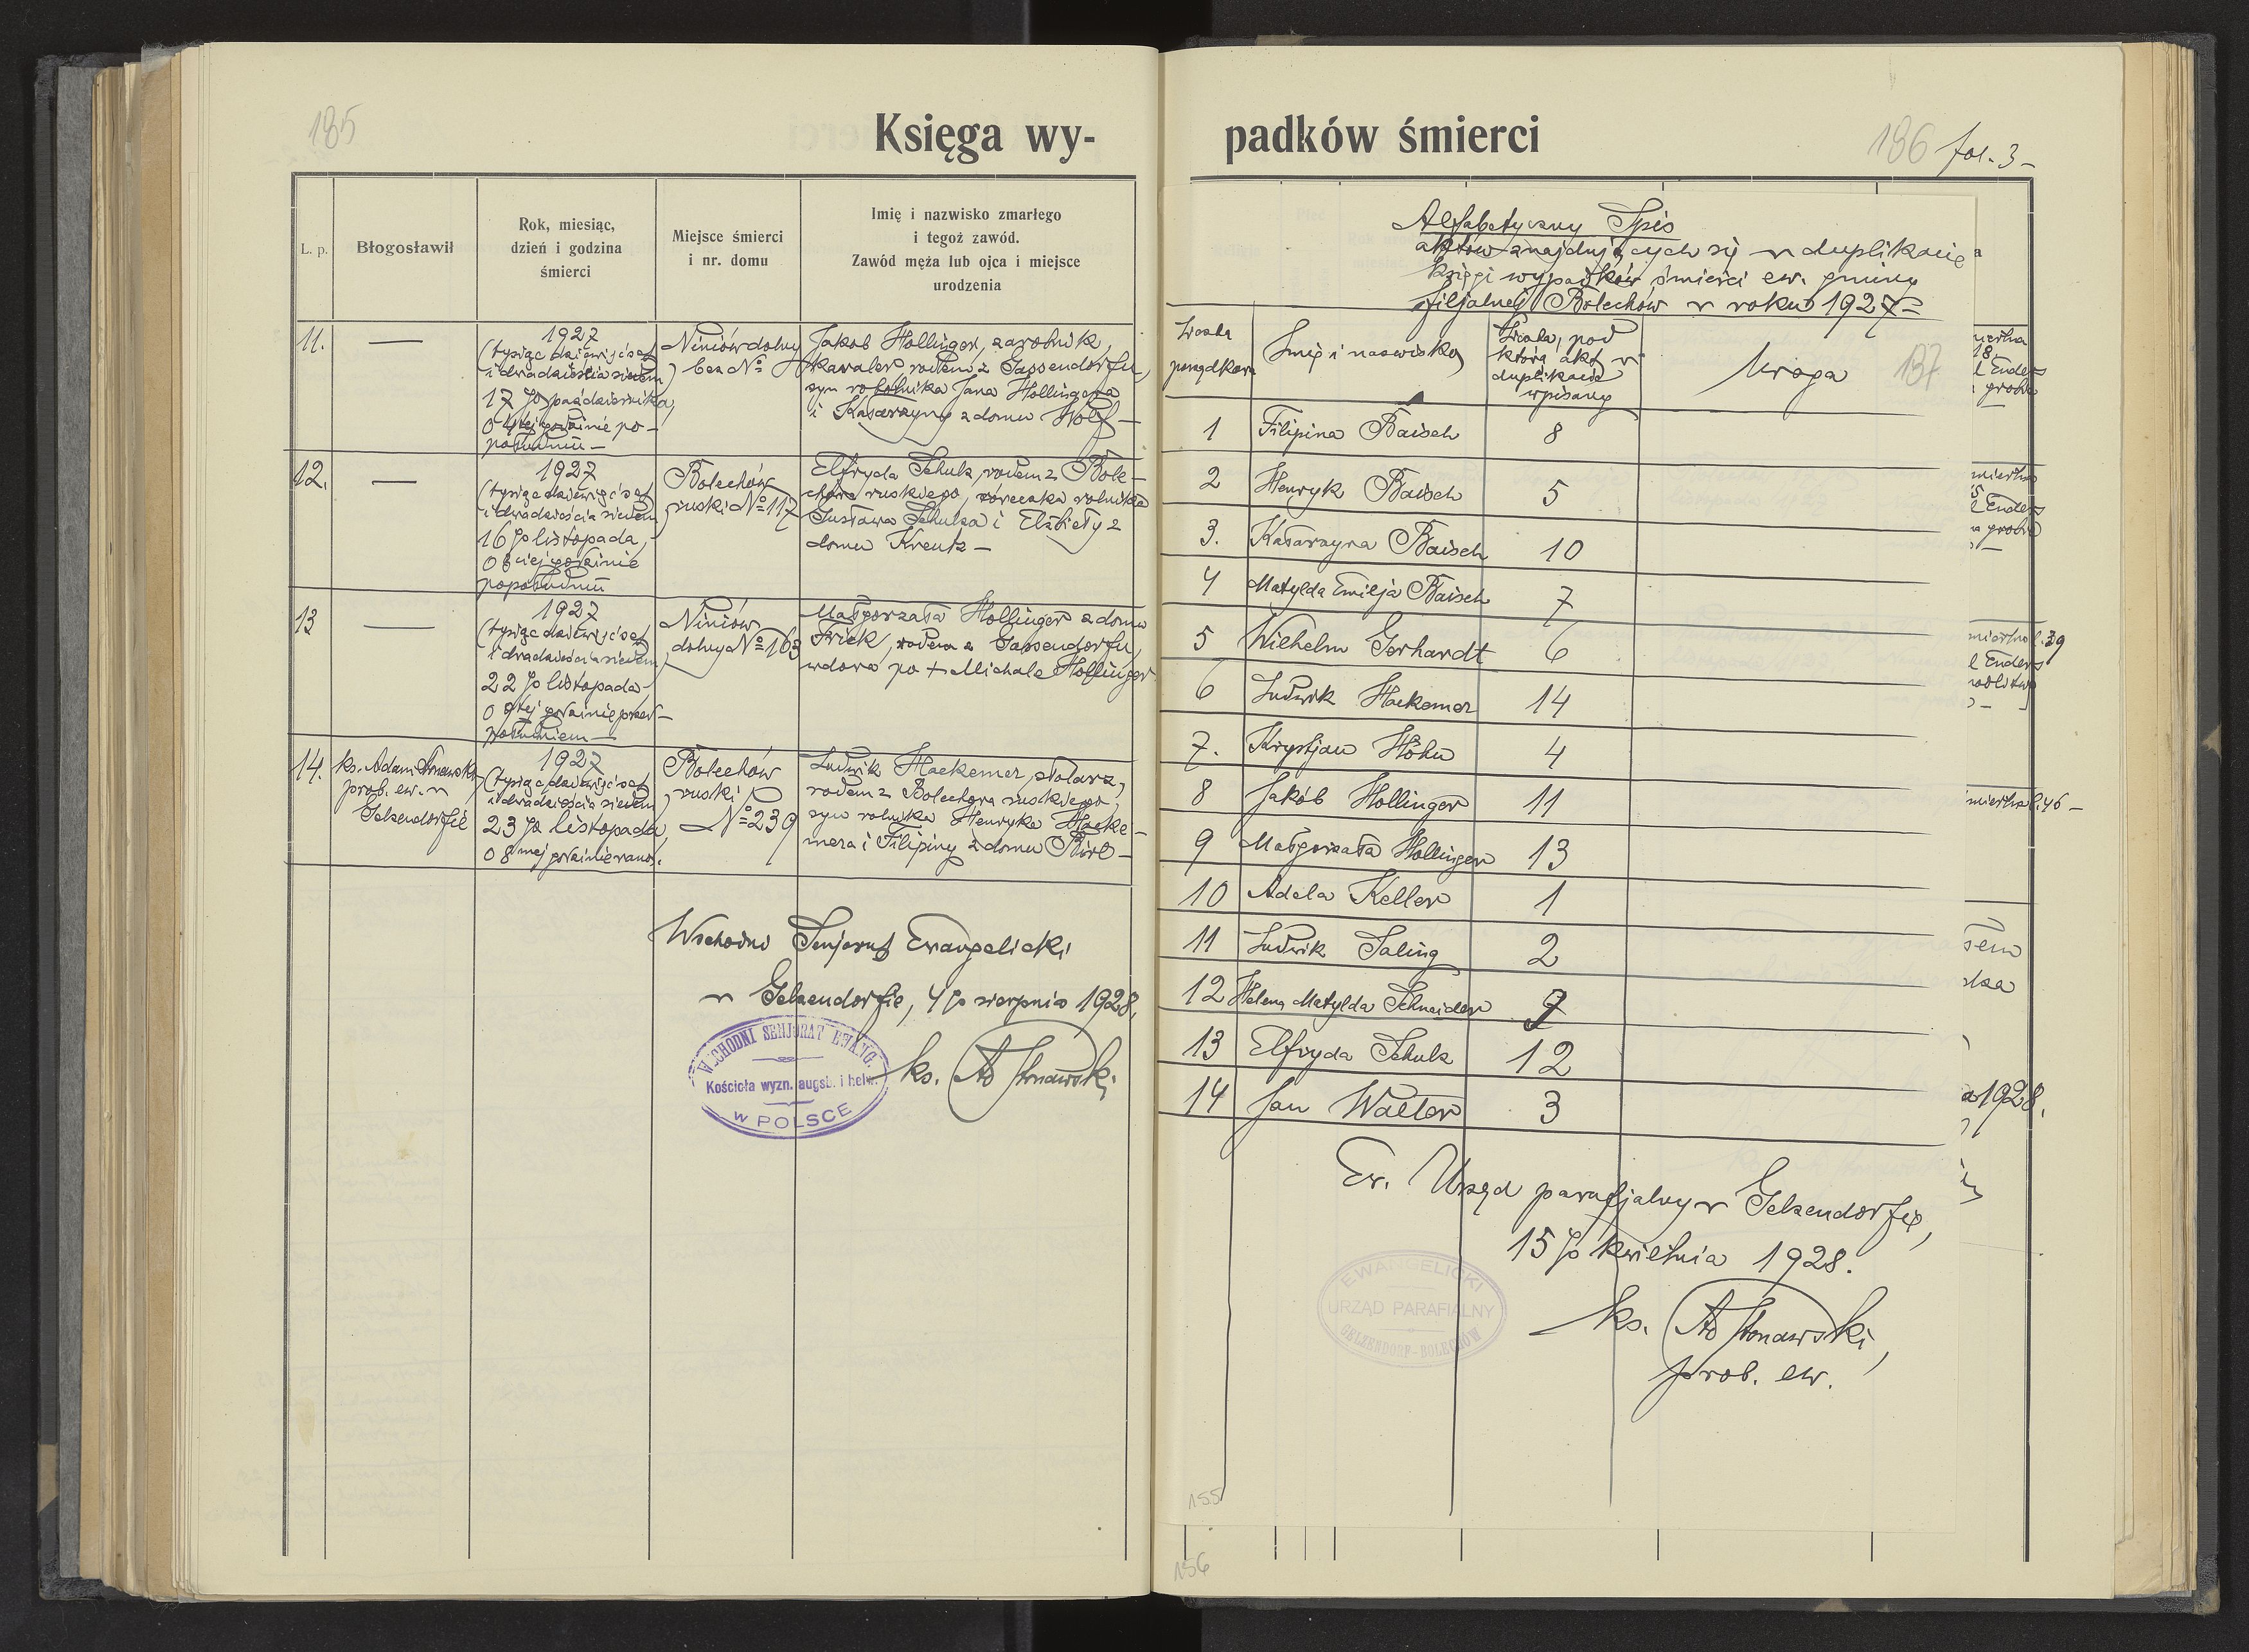 185
Księga wy-
L. p.
Błogosławił
Rok, miesiąc,
dzień i godzina
śmierci
Miejsce śmierci
i nr. domu
Imię i nazwisko zmarłego
i tegoż zawód.
Zawód męża lub ojca i miejsce
urodzenia
11.
—
1927
(tysiąc dziewięćset
i dwadzieścia siedem)
17go października,
o 4tej godzinie po-
południu —
Niniów dolny
bez No
Jakób Hollinger, zarobnik,
kawaler rodem z Gassendorfu,
syn robotnika Jana Hollingera
i Katarzyny z domu Wolf —
12.
—
1927
(tysiąc dziewięćset
i dwadzieścia siedem)
16go listopada,
o
godzinie
popołudniu
Bolechów
ruski No 117
Elfryda Schulz, rodem z Bole-
chowa ruskiego, córeczka rolnika
Gustawa Schulza i Elżbiety z
domu Kreutz —
13
—
1927
(tysiąc dziewięćset
i dwadzieścia siedem)
22go listopada,
o 9tej godzinie przed-
południem —
Niniów
dolny No 163
Małgorzata Hollinger z domu
Frick, rodem z Gassendorfu,
wdowa po + Michale Hollinger
14.
ks. Adam Stonawski
prob. ew. w
Gelsendorfie
1927
(tysiąc dziewięćset
i dwadzieścia siedem)
23go listopada,
o 8mej godzinie rano.
Bolechów
ruski
No 239
Ludwik Hackemer, stolarz,
rodem z Bolechowa ruskiego,
syn rolnika Henryka Hacke-
mera i Filipiny z domu
Wschodni Senjorat Ewangelicki
w Gelsendorfie, 4go sierpnia 1928.
WSCHODNI SENJORAT EWANG.
Kościoła wyzn. augsb. i helw.
W POLSCE
ks. Ad Stonawski
padków śmierci
186
fol. 3 —
Alfabetyczny Spis
aktów znajdujących się w duplikacie
księgi wypadków śmierci ew. gminy
filjalnej Bolechów w roku 1927 =
Liczba
porządkowa
Imię i nazwisko
Liczba, pod
którą akt w
duplikacie
wpisany
Uwaga
137
1 Filipina Baisch 8
2 Henryk Baisch 5
3. Katarzyna Baisch 10
4 Matylda Emilja Baisch 7
5 Wilhelm Gerhardt 6
6 Ludwik Hackemer 14
7. Krystjan Höhn 4
8 Jakób Hollinger 11
9 Małgorzata Hollinger 13
10 Adela Keller 1
11 Ludwik Saling 2
12 Helena Matylda Schneider 9
13 Elfryda Schulz 12
14 Jan Walter 3
Ew. Urząd parafjalny w Gelsendorfie,
15go kwietnia 1928.
EWANGELICKI
URZĄD PARAFIALNY
GELZENDORF-BOLECHÓW
ks. Ad Stonawski,
prob. ew.
155
156
Enders
Enders
l. 39
Enders
l. 46 —
1928.